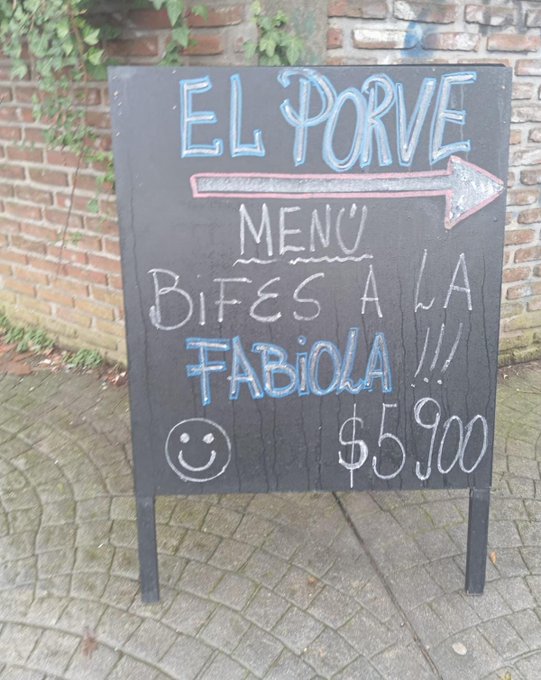 EL PORVE
MENÚ
BIFES A LA
FABIOLA !!!
$5900